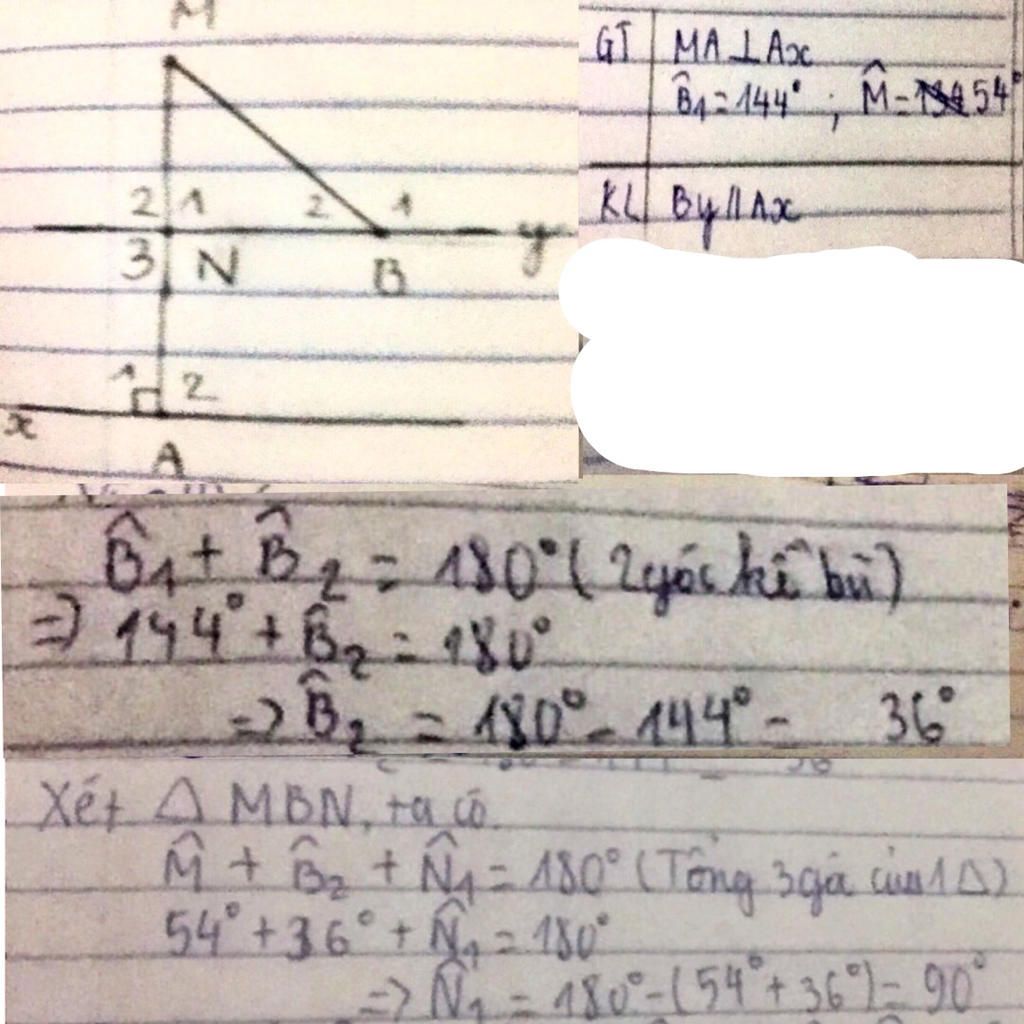 M
2 1 2 1
3 N B y
1 2
x
A
GT MA⊥Ax
B̂1=144° ; M̂=54°
KL By//Ax
B̂1 + B̂2 = 180° (2 góc kề bù)
=> 144° + B̂2 = 180°
=> B̂2 = 180° - 144° = 36°
Xét △ MBN, ta có
M̂ + B̂2 + N̂1 = 180° (Tổng 3 gó của 1△)
54° + 36° + N̂1 = 180°
=> N̂1 = 180° - (54° + 36°) = 90°